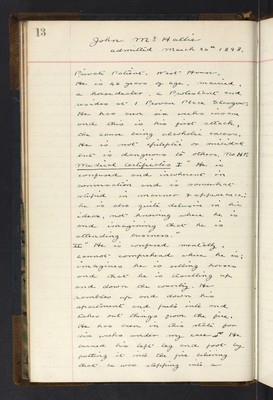 13
John McHallie
admitted March 26th 1898.
Private Patient. West House.
He is 42 years of age, married,
a horsedealer, a Protestant and
resides at 1 Place Glasgow.
He has been six weeks insane
and this is his first attack,
the cause being alcoholic excess.
He is not epileptic or suicidal
but is dangerous to others.
Medical Certificates I" He is
confused and incoherent in
conversation and is somewhat
stupid in manner & appearance;
he is also quite delusive in his
ideas, not knowing where he is
and imagining that he is
attending business.
II" He is confused mentally;
cannot comprehend where he is;
imagines he is selling horses
and that he is travelling up
and down the country. He
rambles up and down his
apartment and puts into and
takes out things from the fire.
He has been in this state for
six weeks under my care." He
burned his left leg and foot by
putting it into the fire believing
that he was stepping into a